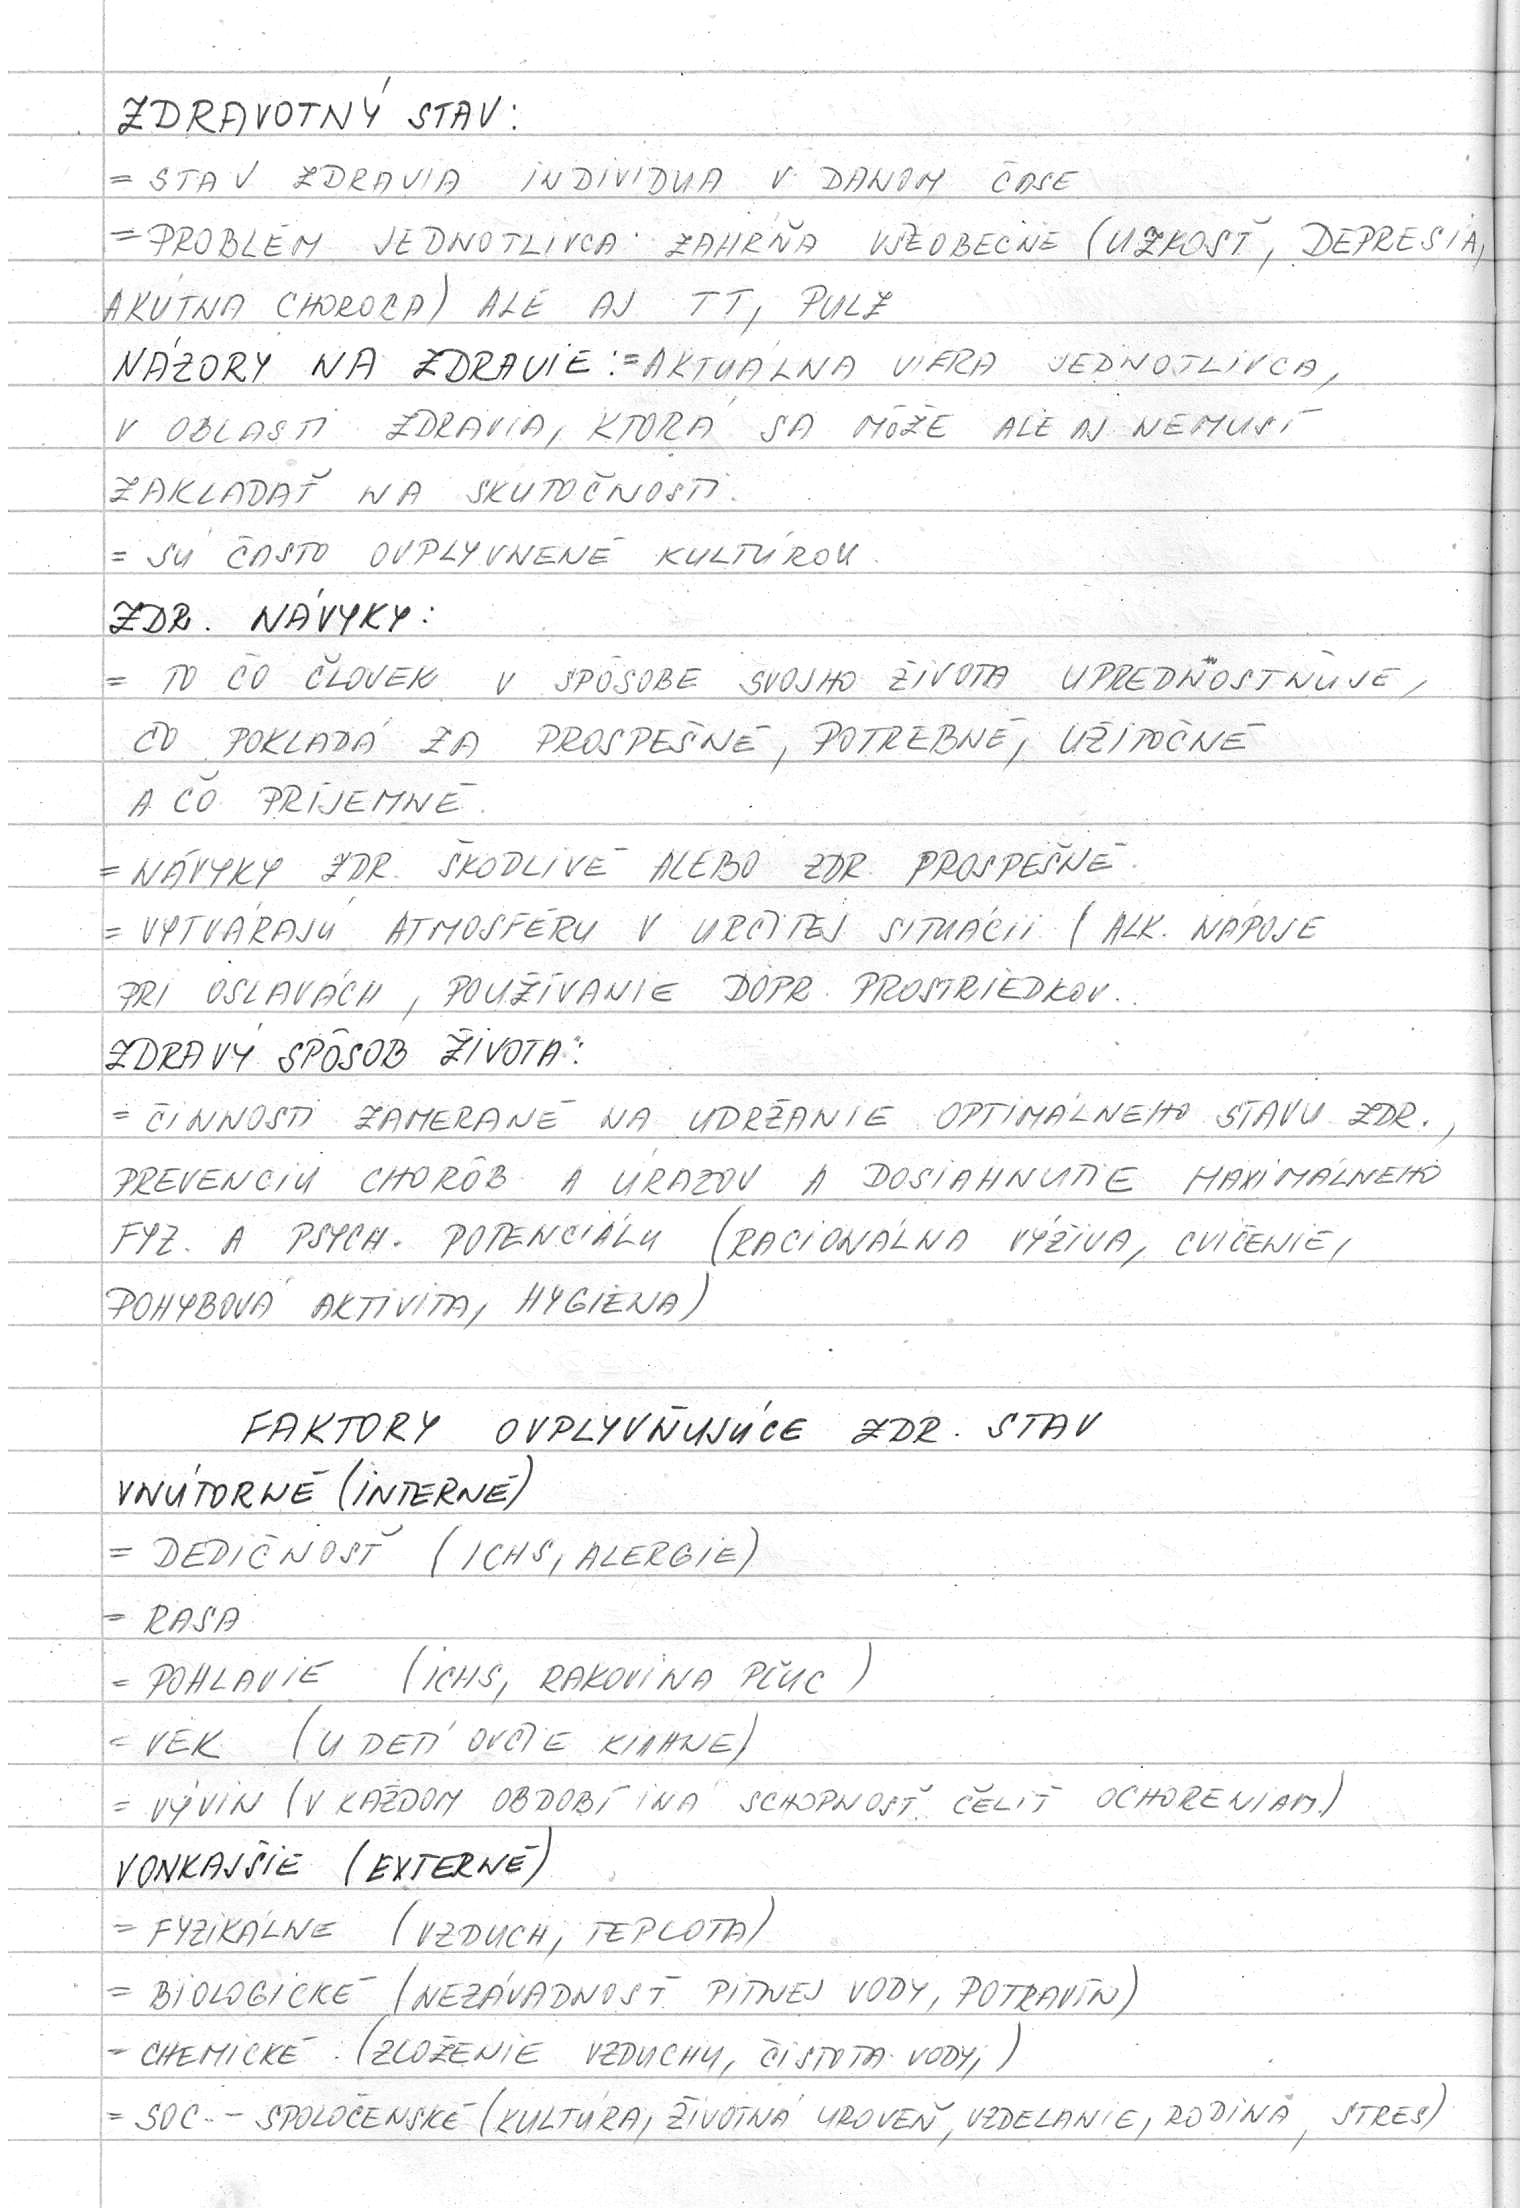 ZDRAVOTNÝ STAV:
= STAV ZDRAVIA INDIVIDUA V DANOM ČASE
= PROBLÉM JEDNOTLIVCA ZAHŔŇA VŠEOBECNE (ÚZKOSŤ, DEPRESIA,
AKÚTNA CHOROBA) ALE AJ TT, PULZ
NÁZORY NA ZDRAVIE: = AKTUÁLNA VIERA JEDNOTLIVCA,
V OBLASTI ZDRAVIA, KTORÁ SA MÔŽE ALE AJ NEMUSÍ
ZAKLADAŤ NA SKUTOČNOSTI.
= SÚ ČASTO OVPLYVNENÉ KULTÚROU.
ZDR. NÁVYKY:
= TO ČO ČLOVEK V SPÔSOBE SVOJHO ŽIVOTA UPREDNOSTŇUJE,
ČO POKLADÁ ZA PROSPEŠNÉ, POTREBNÉ, UŽITOČNÉ
A ČO PRÍJEMNÉ.
= NÁVYKY ZDR. ŠKODLIVÉ ALEBO ZDR. PROSPEŠNÉ.
= VYTVÁRAJÚ ATMOSFÉRU V URČITEJ SITUÁCII (ALK. NÁPOJE
PRI OSLAVÁCH, POUŽÍVANIE DOPR. PROSTRIEDKOV..
ZDRAVÝ SPÔSOB ŽIVOTA:
= ČINNOSTI ZAMERANÉ NA UDRŽANIE OPTIMÁLNEHO STAVU ZDR.,
PREVENCIU CHORÔB A ÚRAZOV A DOSIAHNUTIE MAXIMÁLNEHO
FYZ. A PSYCH. POTENCIÁLU (RACIONÁLNA VÝŽIVA, CVIČENIE,
POHYBOVÁ AKTIVITA, HYGIENA)
FAKTORY OVPLYVŇUJÚCE ZDR. STAV
VNÚTORNÉ (INTERNÉ)
= DEDIČNOSŤ (ICHS, ALERGIE)
= RASA
= POHLAVIE (ICHS, RAKOVINA PĽUC)
= VEK (U DETÍ OVČIE KIAHNE)
= VÝVIN (V KAŽDOM OBDOBÍ INÁ SCHOPNOSŤ ČELIŤ OCHORENIAM)
VONKAJŠIE (EXTERNÉ)
= FYZIKÁLNE (VZDUCH, TEPLOTA)
= BIOLOGICKÉ (NEZÁVADNOSŤ PITNEJ VODY, POTRAVÍN)
= CHEMICKÉ (ZLOŽENIE VZDUCHU, ČISTOTA VODY,)
= SOC. - SPOLOČENSKÉ (KULTÚRA, ŽIVOTNÁ ÚROVEŇ, VZDELANIE, RODINA, STRES)